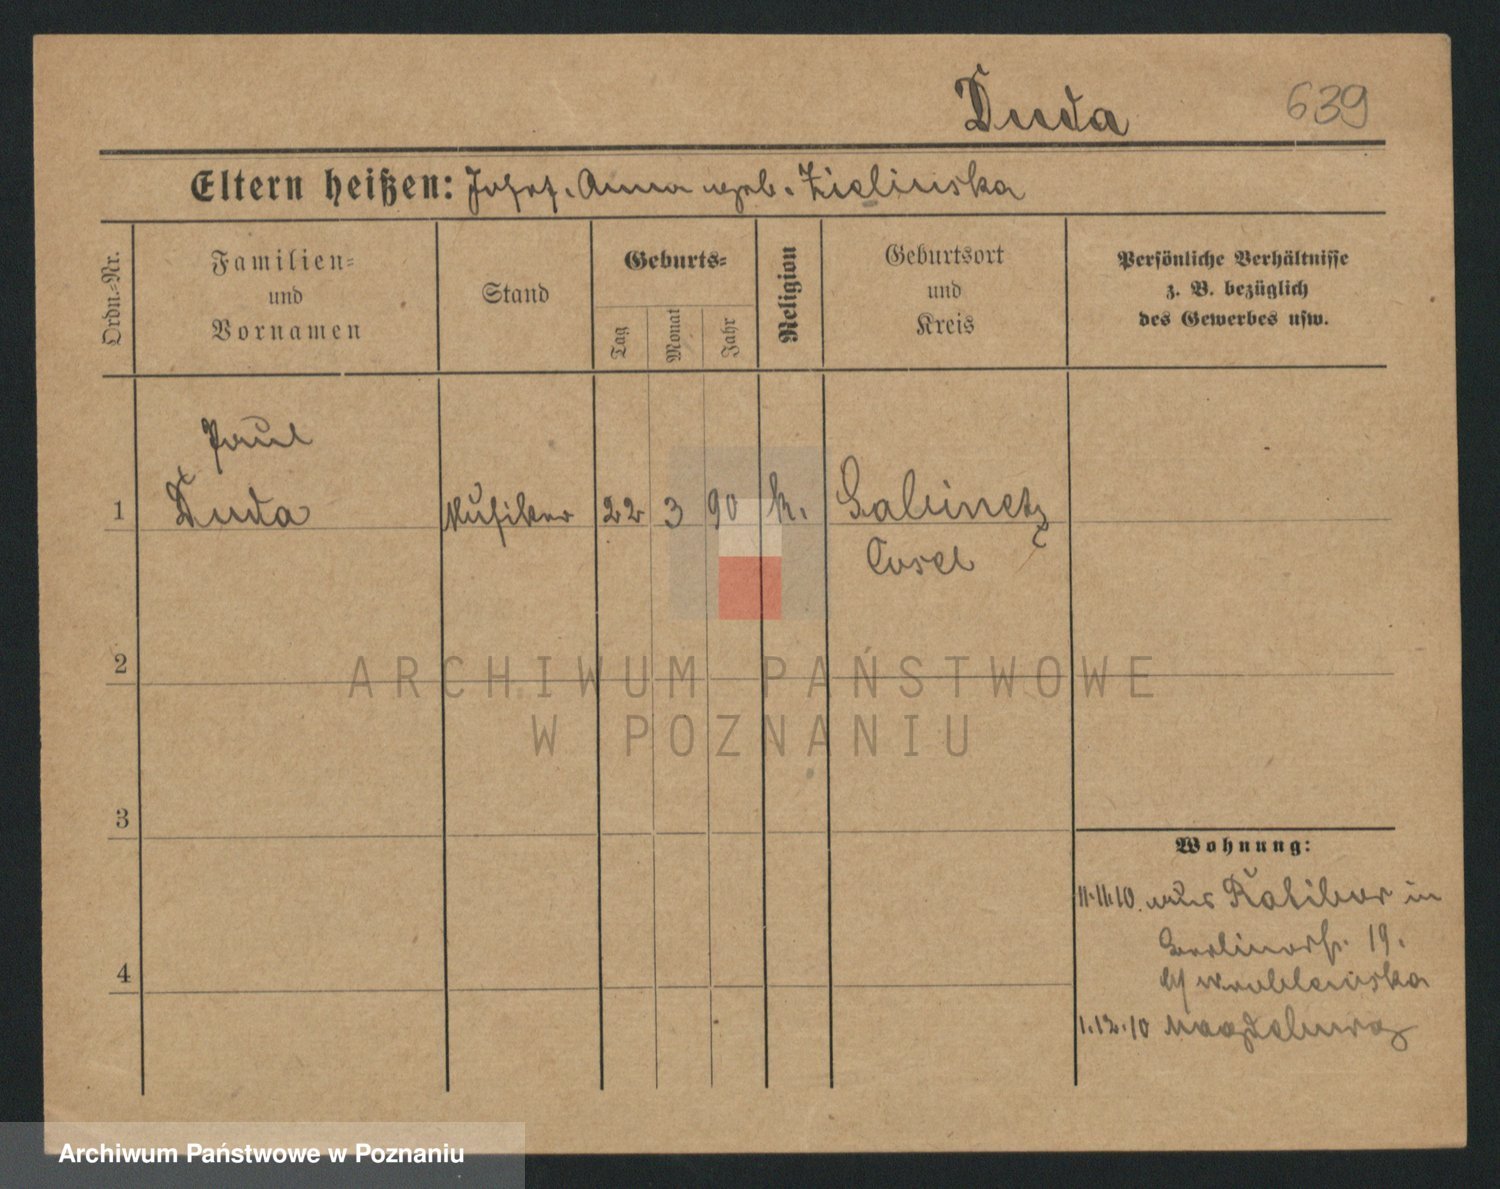 Duda 639
Eltern heißen: Josef. Anna geb. Zielinska
Ordn.-Nr.
Familien-
und
Vornamen
Stand
Geburts-
Tag
Monat
Jahr
Religion
Geburtsort
und
Kreis
Persönliche Verhältnisse
z. B. bezüglich
des Gewerbes usw.
Paul
1 Duda Musiker 22 3 90 k.
Cosel
2
ARCHIWUM PAŃSTWOWE
W POZNANIU
3
Wohnung:
11.11.10. aus Ratibor in
Berlinerstr. 19.
4
1.12.10 Magdeburg
Archiwum Państwowe w Poznaniu